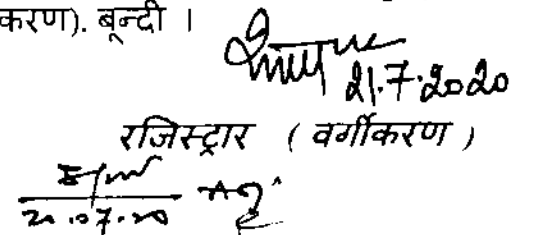 करण). बून्दी ।
21.7.2020
रजिस्ट्रार ( वर्गीकरण )
20.07.20